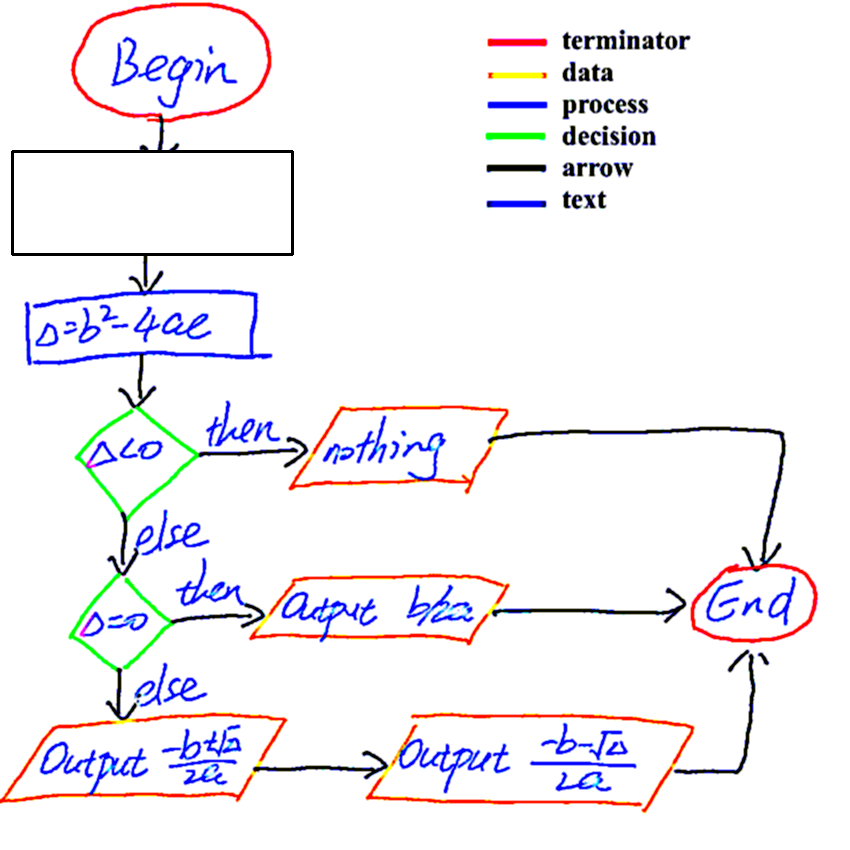 Begin
terminator
data
process
decision
arrow
text
Δ=b²-4ac
Δ<0
then
nothing
else
Δ=0
then
Output b/2a
End
else
Output -b+√Δ/2a
Output -b-√Δ/2a